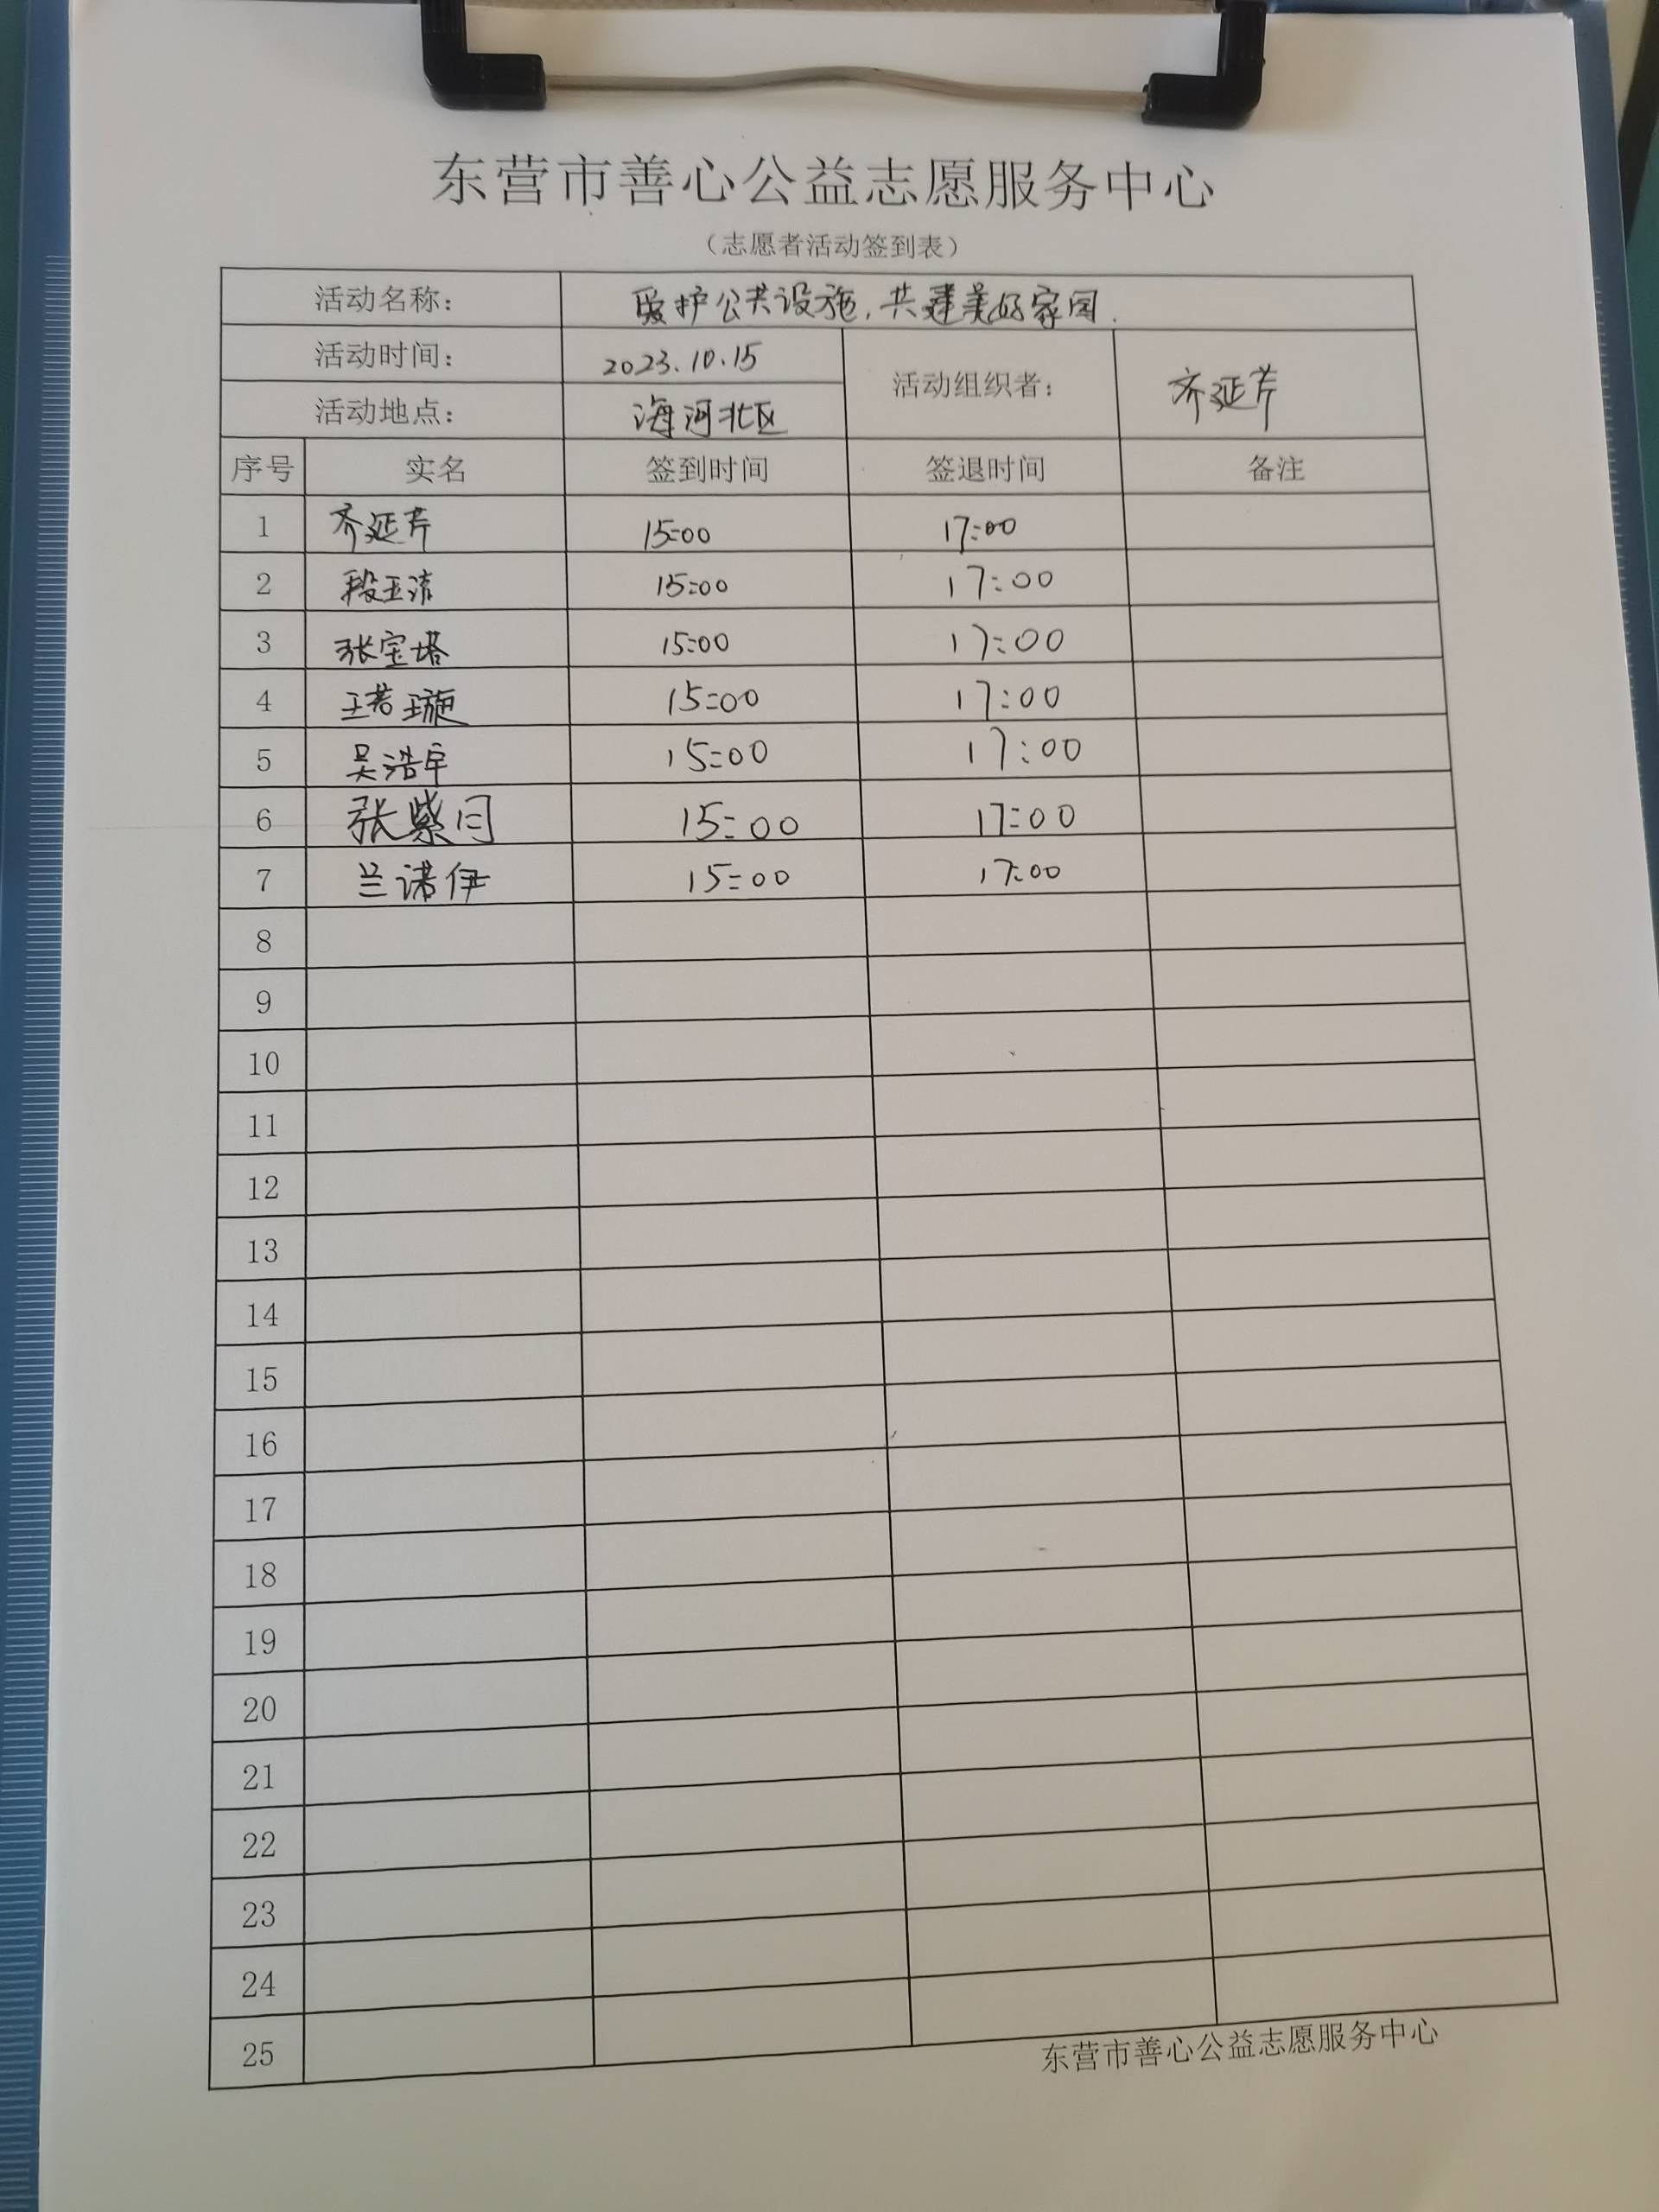 东营市善心公益志愿服务中心
（志愿者活动签到表）
活动名称： 爱护公共设施，共建美好家园.
活动时间： 2023.10.15 活动组织者： 齐延芹
活动地点： 海河北区
序号 实名 签到时间 签退时间 备注
1 齐延芹 15:00 17:00
2 段玉清 15:00 17:00
3 张宝塔 15:00 17:00
4 王若璇 15:00 17:00
5 吴浩宇 15:00 17:00
6 张紫 15:00 17:00
7 兰诺伊 15:00 17:00
8
9
10
11
12
13
14
15
16
17
18
19
20
21
22
23
24
25
东营市善心公益志愿服务中心